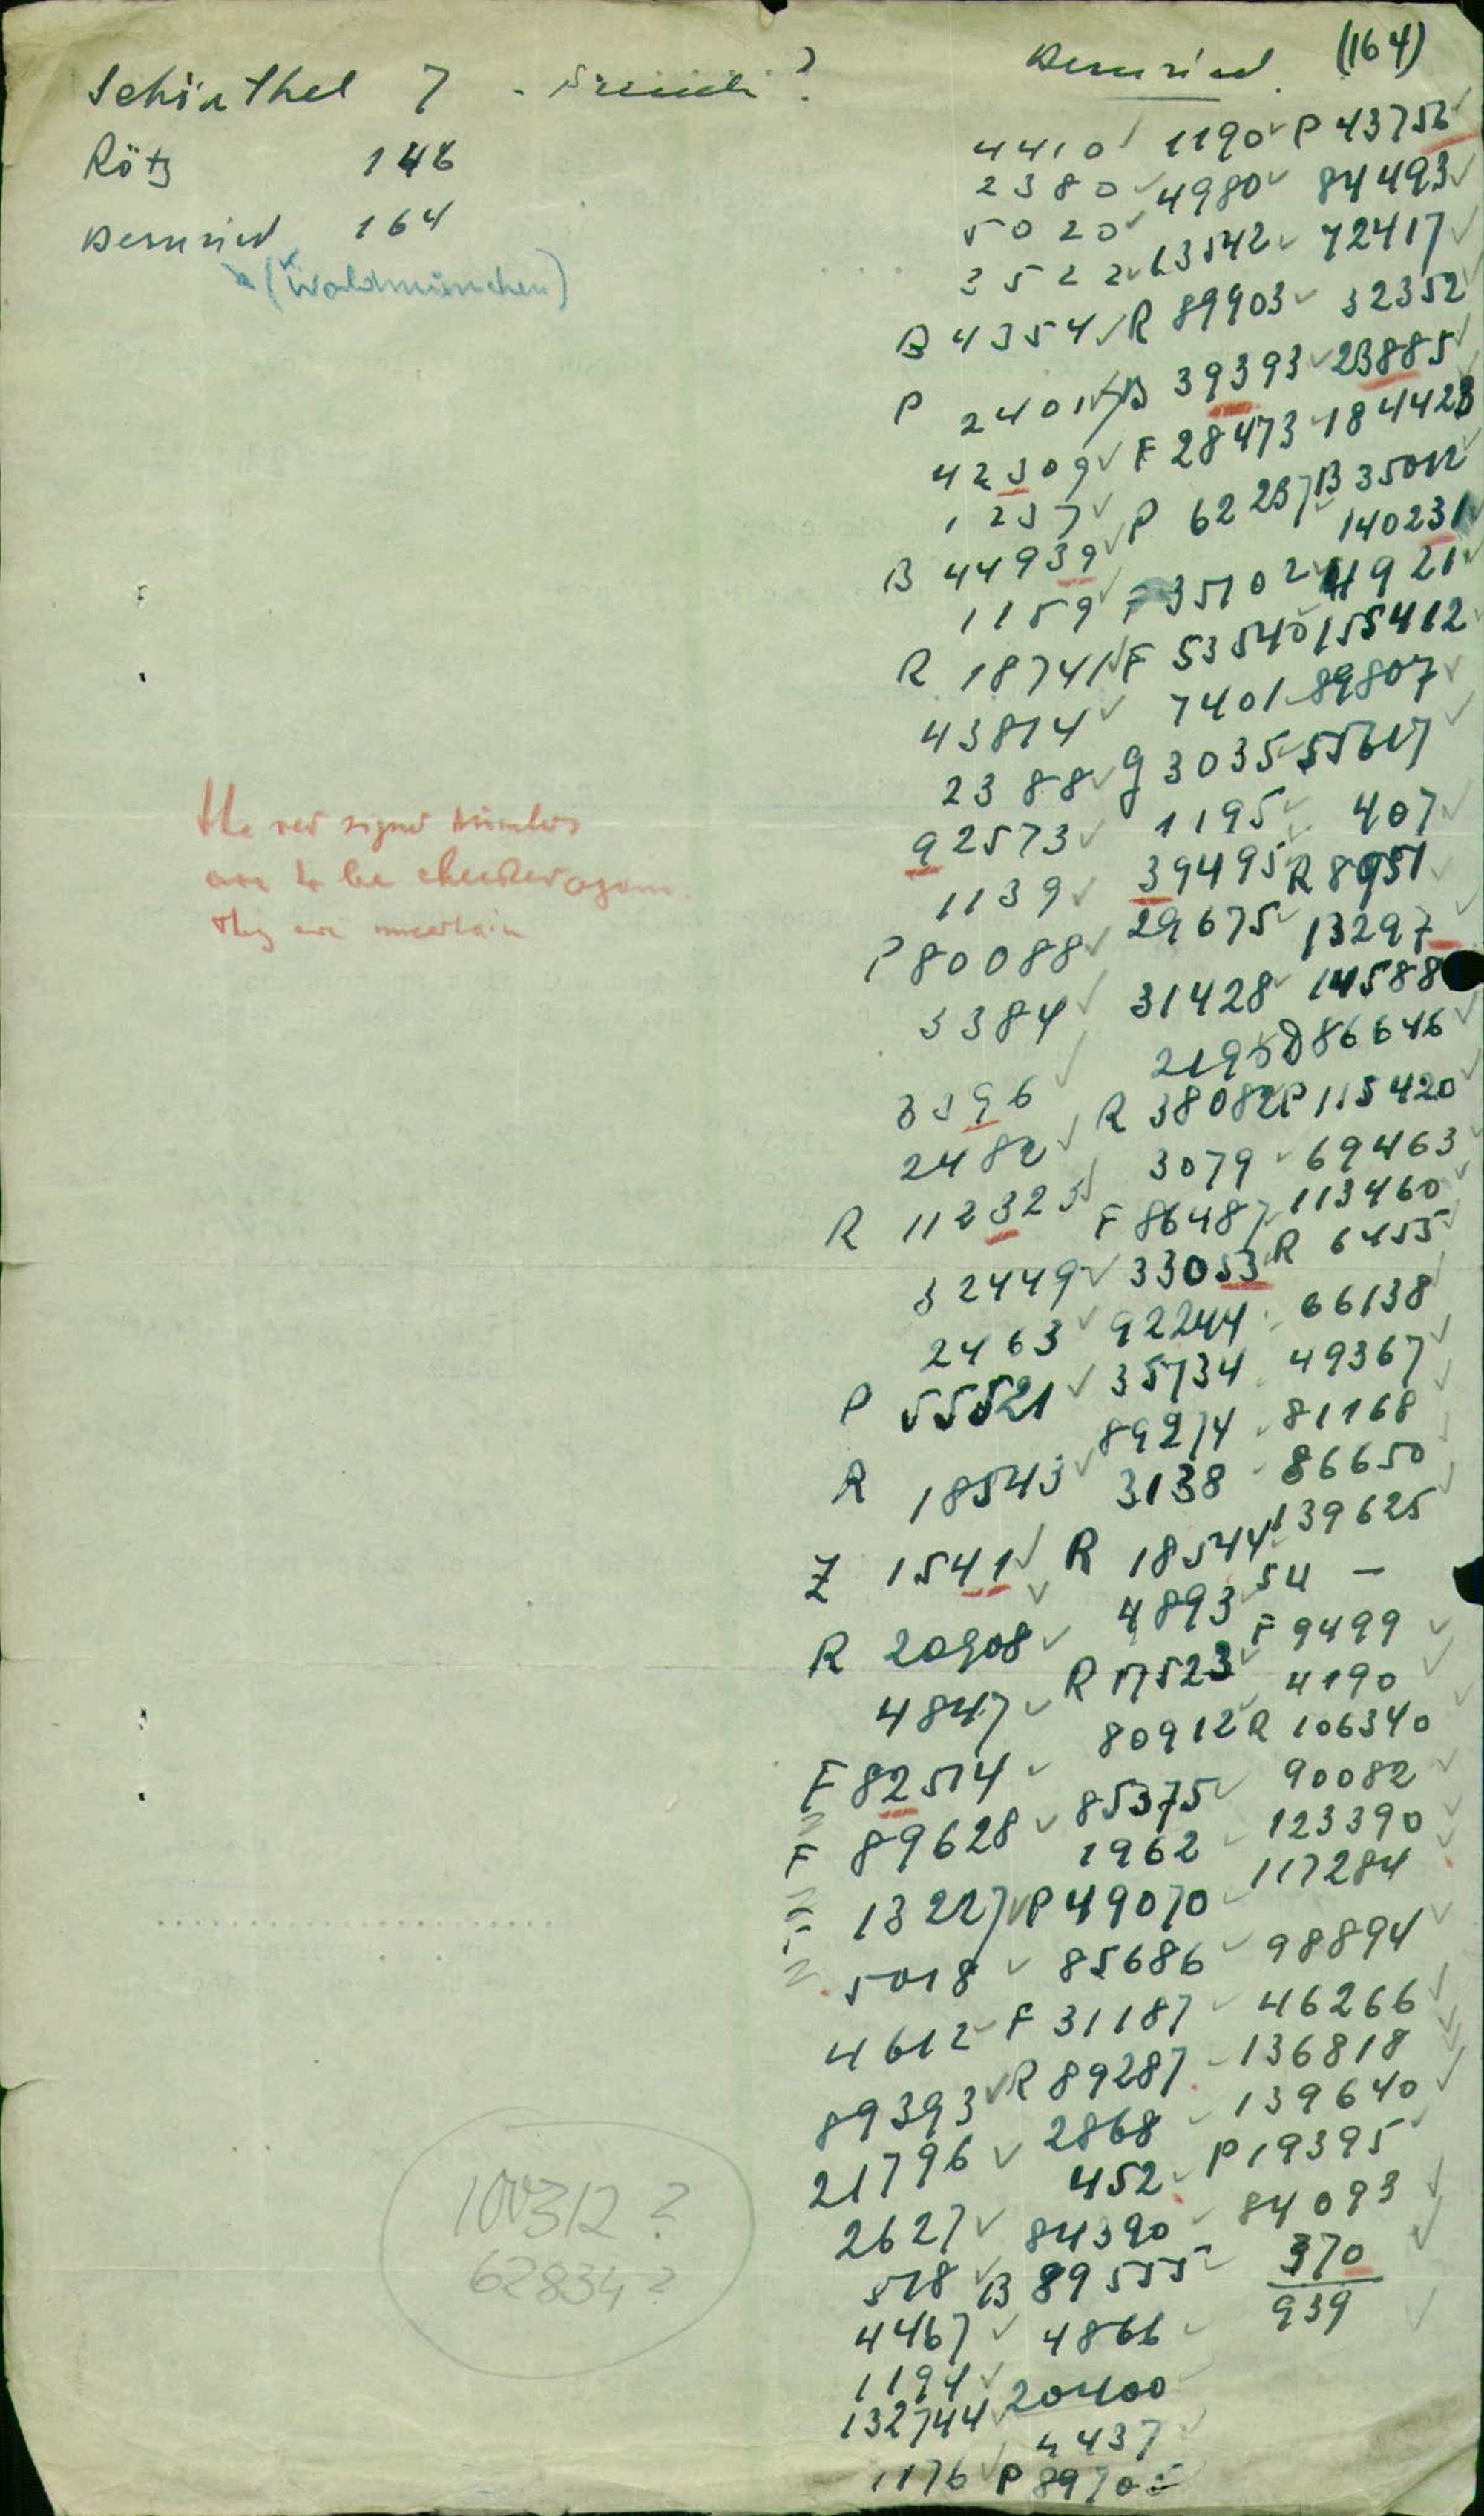 Schönthal 7 - ?
Rötz 146
Bernried 164
(Waldmünchen)
the red signed numbers
are to be checked again.
they are uncertain
100312 ?
62834 ?
Bernried (164)
4410 1190 P 43756
2380 4980 84493
5020 63542 72417
3522 R 89903 32352
B 4354 B 39393 23885
P 24017 F 28473 184423
42309 P 62237 B 35012
1237 140231
B 44939 F 35102 4921
1159 F 53540 155412
R 18741 7401 89807
43814 g 3035 55617
2388 1195 407
92573 39495 R 8951
1139 29675 13297
P 80088 31428 14588
3384 2195 D 86646
3396 R 38082 P 115420
2482 3079 69463
R 112325 F 86487 113460
32449 33053 R 6455
2463 92244 66138
P 55521 35734 49367
89274 81168
R 18543 3138 86650
Z 1541 R 18544 139625
R 20908 4893 54 -
4847 R 17523 F 9499
F 82514 80912 4190
F 89628 85375 R 106340
13227 1962 90082
5018 P 49070 123390
4612 85686 117284
89393 F 31187 98894
21796 R 89287 46266
2627 2868 136818
518 452 139640
4467 84390 P 19395
1194 B 89555 84093
132744 4866 370
1176 20400 939
4437
P 89705